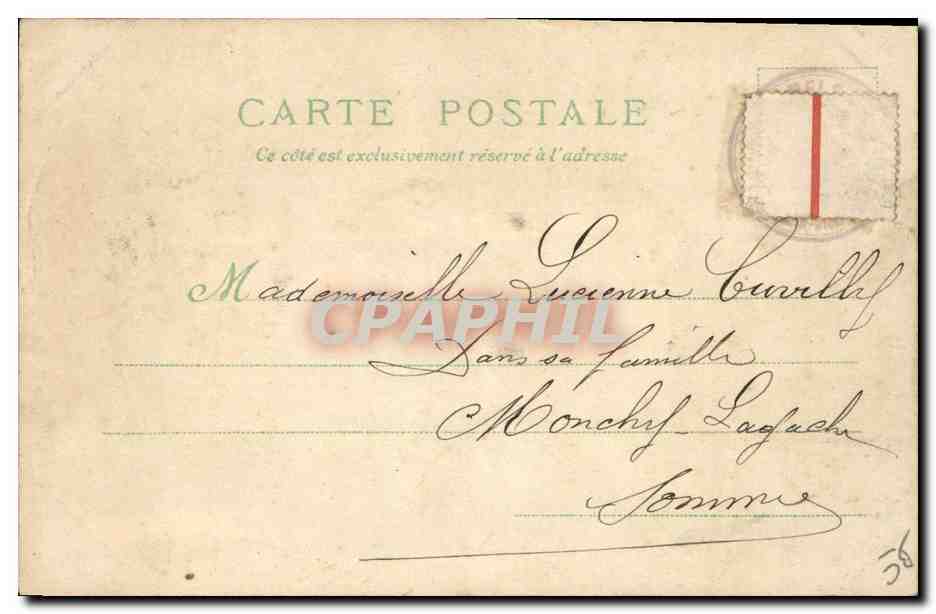 CARTE POSTALE
Ce côté est exclusivement réservé à l'adresse
Mademoiselle Lucienne Cuvilly
CPAPHIL
Dans sa famille
Monchy-Lagache
Somme